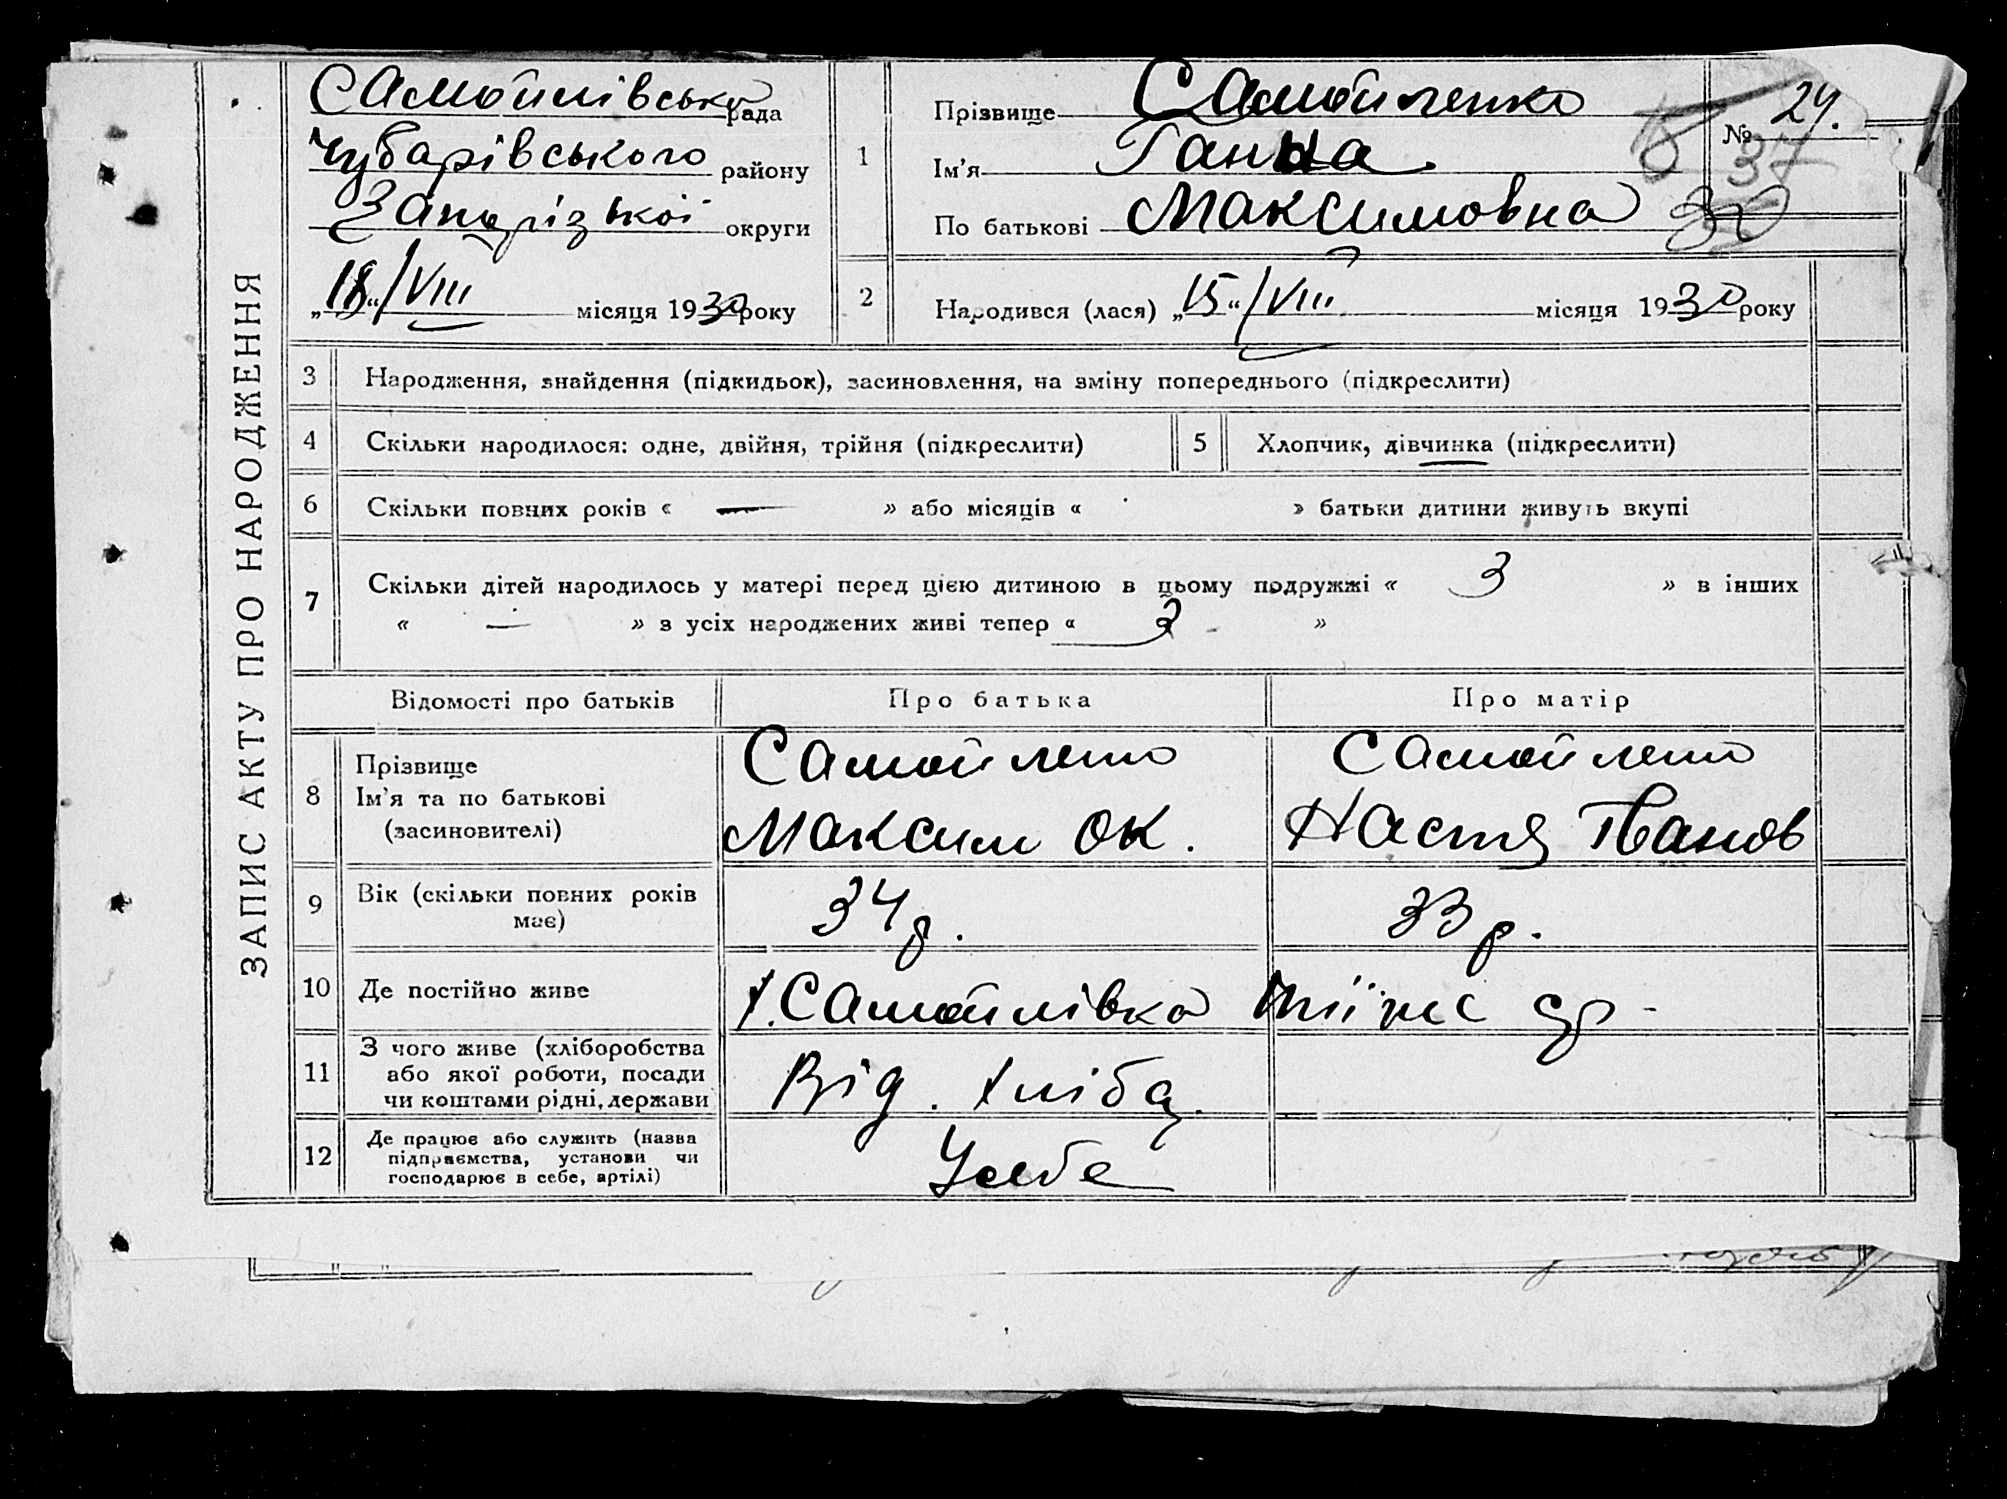 ЗАПИС АКТУ ПРО НАРОДЖЕННЯ
Самойлівська рада
Чубарівського району
Запорізької округи
„18“/VIII місяця 1930 року
1
Прізвище Самойленко
Ім'я Ганна
По батькові Максимовна
№ 24.
37
30
2
Народився (лася) „15“/VIII місяця 1930 року
3 Народження, знайдення (підкидьок), засиновлення, на зміну попереднього (підкреслити)
4 Скільки народилося: одне, двійня, трійня (підкреслити)
5 Хлопчик, дівчинка (підкреслити)
6 Скільки повних років « — » або місяців « » батьки дитини живуть вкупі
7 Скільки дітей народилось у матері перед цією дитиною в цьому подружжі « 3 » в інших
« — » з усіх народжених живі тепер « 3 »
Відомості про батьків
Про батька
Про матір
8 Прізвище
Ім'я та по батькові
(засиновителі)
Самойленко
Максим Ок.
Самойленко
Настя Іванов
9 Вік (скільки повних років
має)
34 р.
33 р.
10 Де постійно живе
х. Самойлівка
11 З чого живе (хліборобства
або якої роботи, посади
чи коштами рідні, держави
Від. хліба.
12 Де працює або служить (назва
підприємства, установи чи
господарює в себе, артілі)
У себе